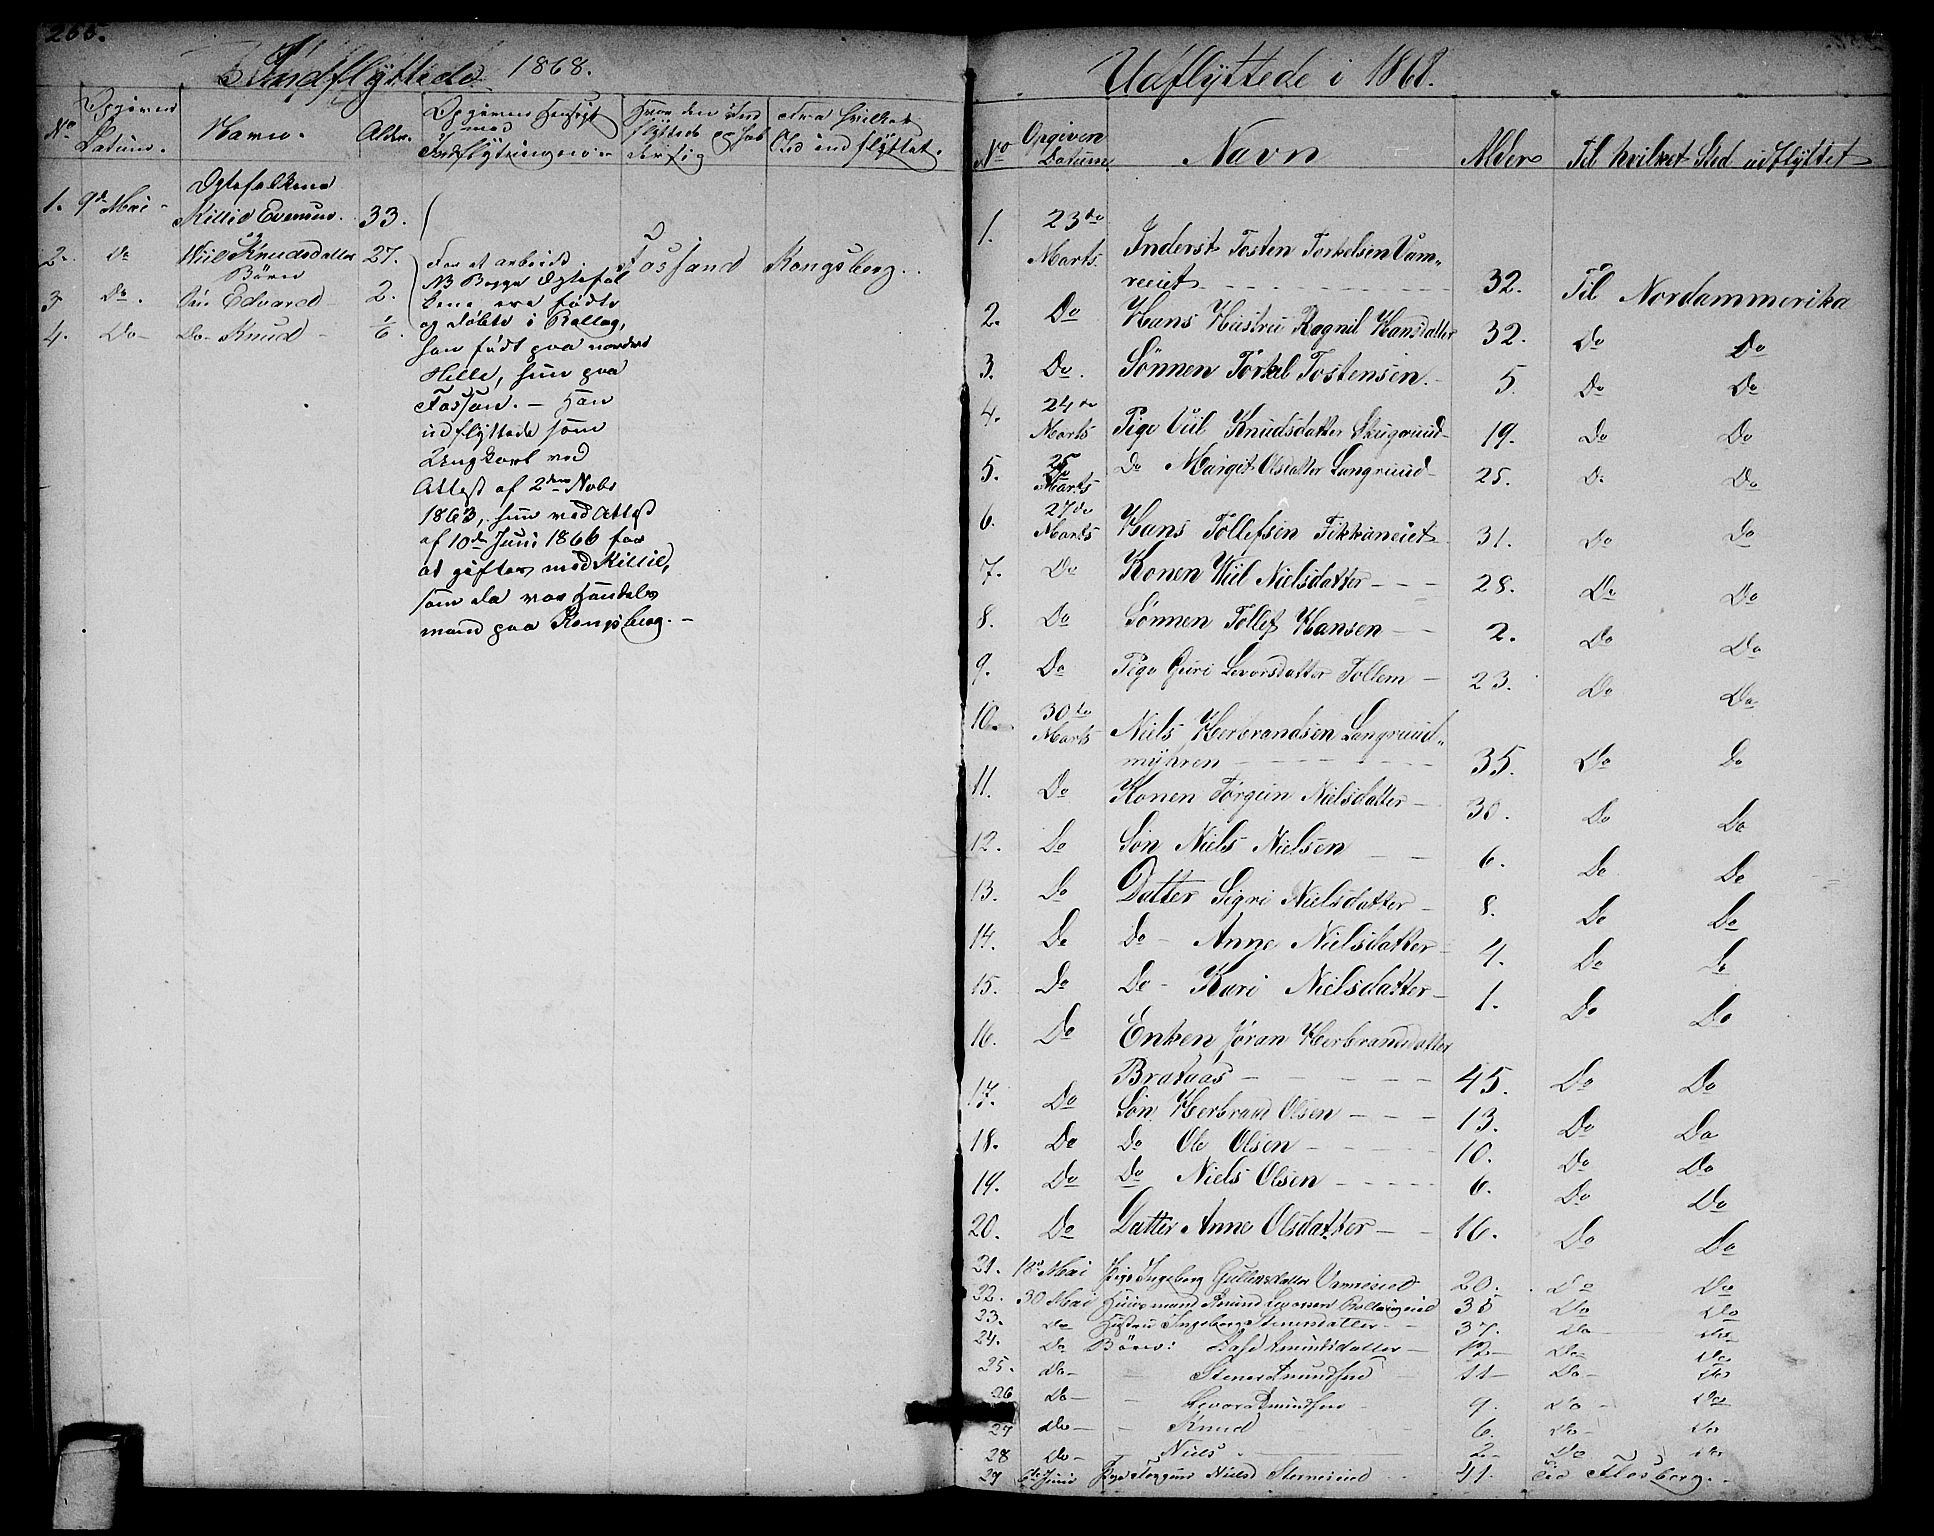 Indflyttede 1868.
No
Opgiven Datum.
Navn.
Alder.
Opgiven Hensigt med Indflytningen
Hvor den Indflyttede
Fra hvilket Sted indflyttet.
Ogtefolkene
1. 9de Mai - Killid Evensen. 33.
og
2. Do Wiil Knudsdatter 27.
Børn
3. Do. Søn Edvard 2.
4. Do- Do- Knud - 1/6.
For at arbeide.
NB Begge Ogtefol
kene ere fødte
og døbte i Rollag,
han født paa nordre
Helle, hun paa
Fossan. - Han
udflyttede som
Ungkarl ved
Attest af 2den Novbr
1863, hun ved Attest
af 10de Juni 1866 for
at giftes med Killid,
som da var Handels
mand paa Kongsberg. -
Fossand Kongsberg.
Udflyttede i 1868.
No Opgiven Datum Navn Alder Til hvilket Sted udflyttet
1. 23de Marts. Inderst Tosten Torkelsen Vam„
reiet - - - 32. Til Nordammerika
2. Do Hans Hustru Ragnil Hansdatter 32. Do Do
3. Do. Sønnen Torkel Tostensen. 5. Do Do
4. 24de Marts Pige Viil Knudsdatter 19. Do Do
5. 25 Do Marts Do Margit Olsdatter Langruud 25. Do Do
6. 27de Marts Hans Tollefsen 31. Do Do
7. Do Konen Wiil Nielsdatter - - - 28. Do Do
8. Do Sønnen Tollef Hansen - - 2. Do Do
9. Do Pige Guri Levorsdatter 23. Do Do
10. 30te Marts Niels Herbrandsen Langruud„
myhren - - - 35. Do Do
11. Do Konen Jørgin Nielsdatter - 30. Do Do
12. Do Søn Niels Nielsen - - 6. Do Do
13. Do Datter Sigri Nielsdatter - 8. Do Do
14. Do Do - Anne Nielsdatter 4. Do Do
15. Do Do - Kari Nielsdatter - 1. Do Do
16. Do Enken Jøran Herbrandsdatter
Brataas - - - 45. Do Do
17. Do Søn Herbrand Olsen - - - 13. Do Do
18. Do Do Ole Olsen - - - 10. Do Do
19. Do Do Niels Olsen - - - 6. Do Do
20. Do Datter Anne Olsdatter - - 16. Do Do
21. 18de Mai Pige Ingeborg 20. Do Do
22. 30 Mai Huusmand Amund Levorsen 35 Do Do
23. do Hustru Ingeborg Stenersdatter - 37. Do Do
24. Do Børn: Amundsdatter - 12 Do Do
25. Do - Stener Amundsen 11 Do Do
26 Do - Levor Amundsen 9. Do Do
27 do - Knud 6. Do Do
28 do - Niels 2 Do Do
29 6te Juni Pige Niels 41. Til Flesberg. -